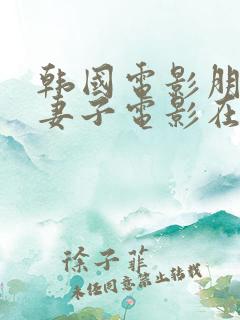 韩国电影朋
妻子电影在
徐子菲
未经同意禁止转载